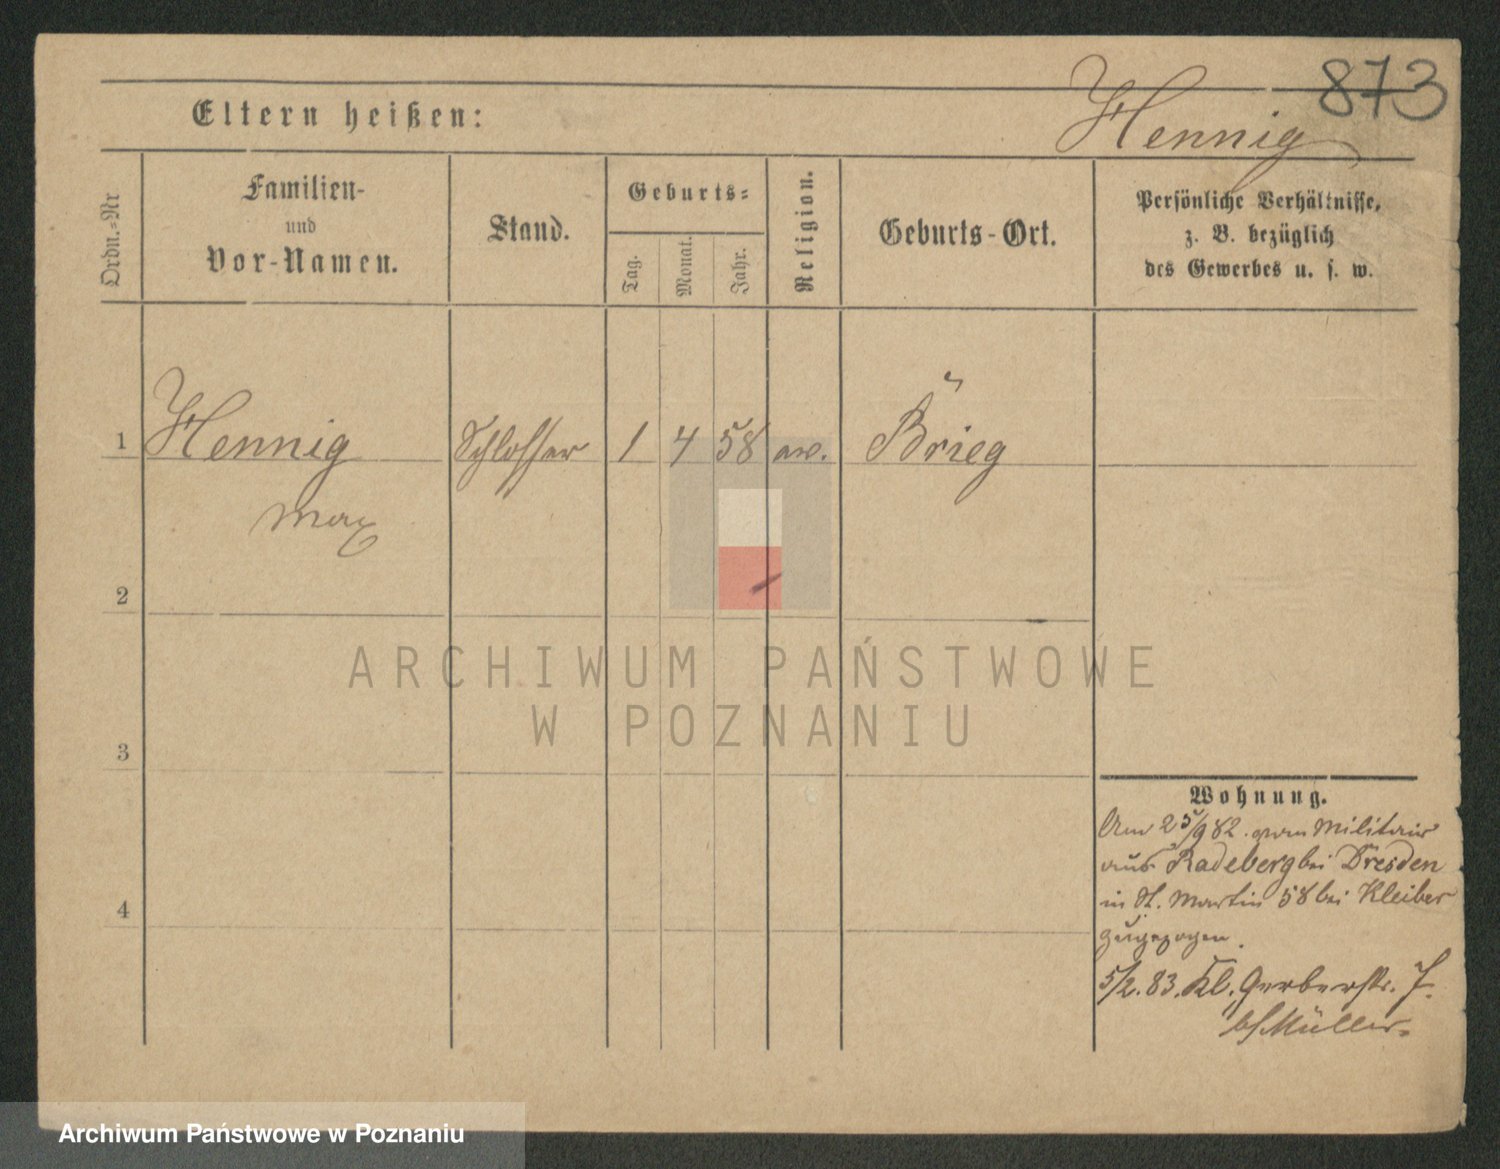 873
Hennig
Eltern heißen:
Ordn.=Nr
Familien-
und
Vor-Namen.
Stand.
Geburts=
Tag.
Monat.
Jahr.
Religion.
Geburts-Ort.
Persönliche Verhältnisse,
z. B. bezüglich
des Gewerbes u. s. w.
1
Hennig Schlosser 1 4 58 ev. Brieg
Max
2
3
4
ARCHIWUM PAŃSTWOWE
W POZNANIU
Wohnung.
Am 25/9 82. vom Militair
aus Radeberg bei Dresden
in St. Martin 58 bei Kleiber
zugezogen.
5/2. 83. Kl. Gerberstr. 7.
b/Müller.
Archiwum Państwowe w Poznaniu